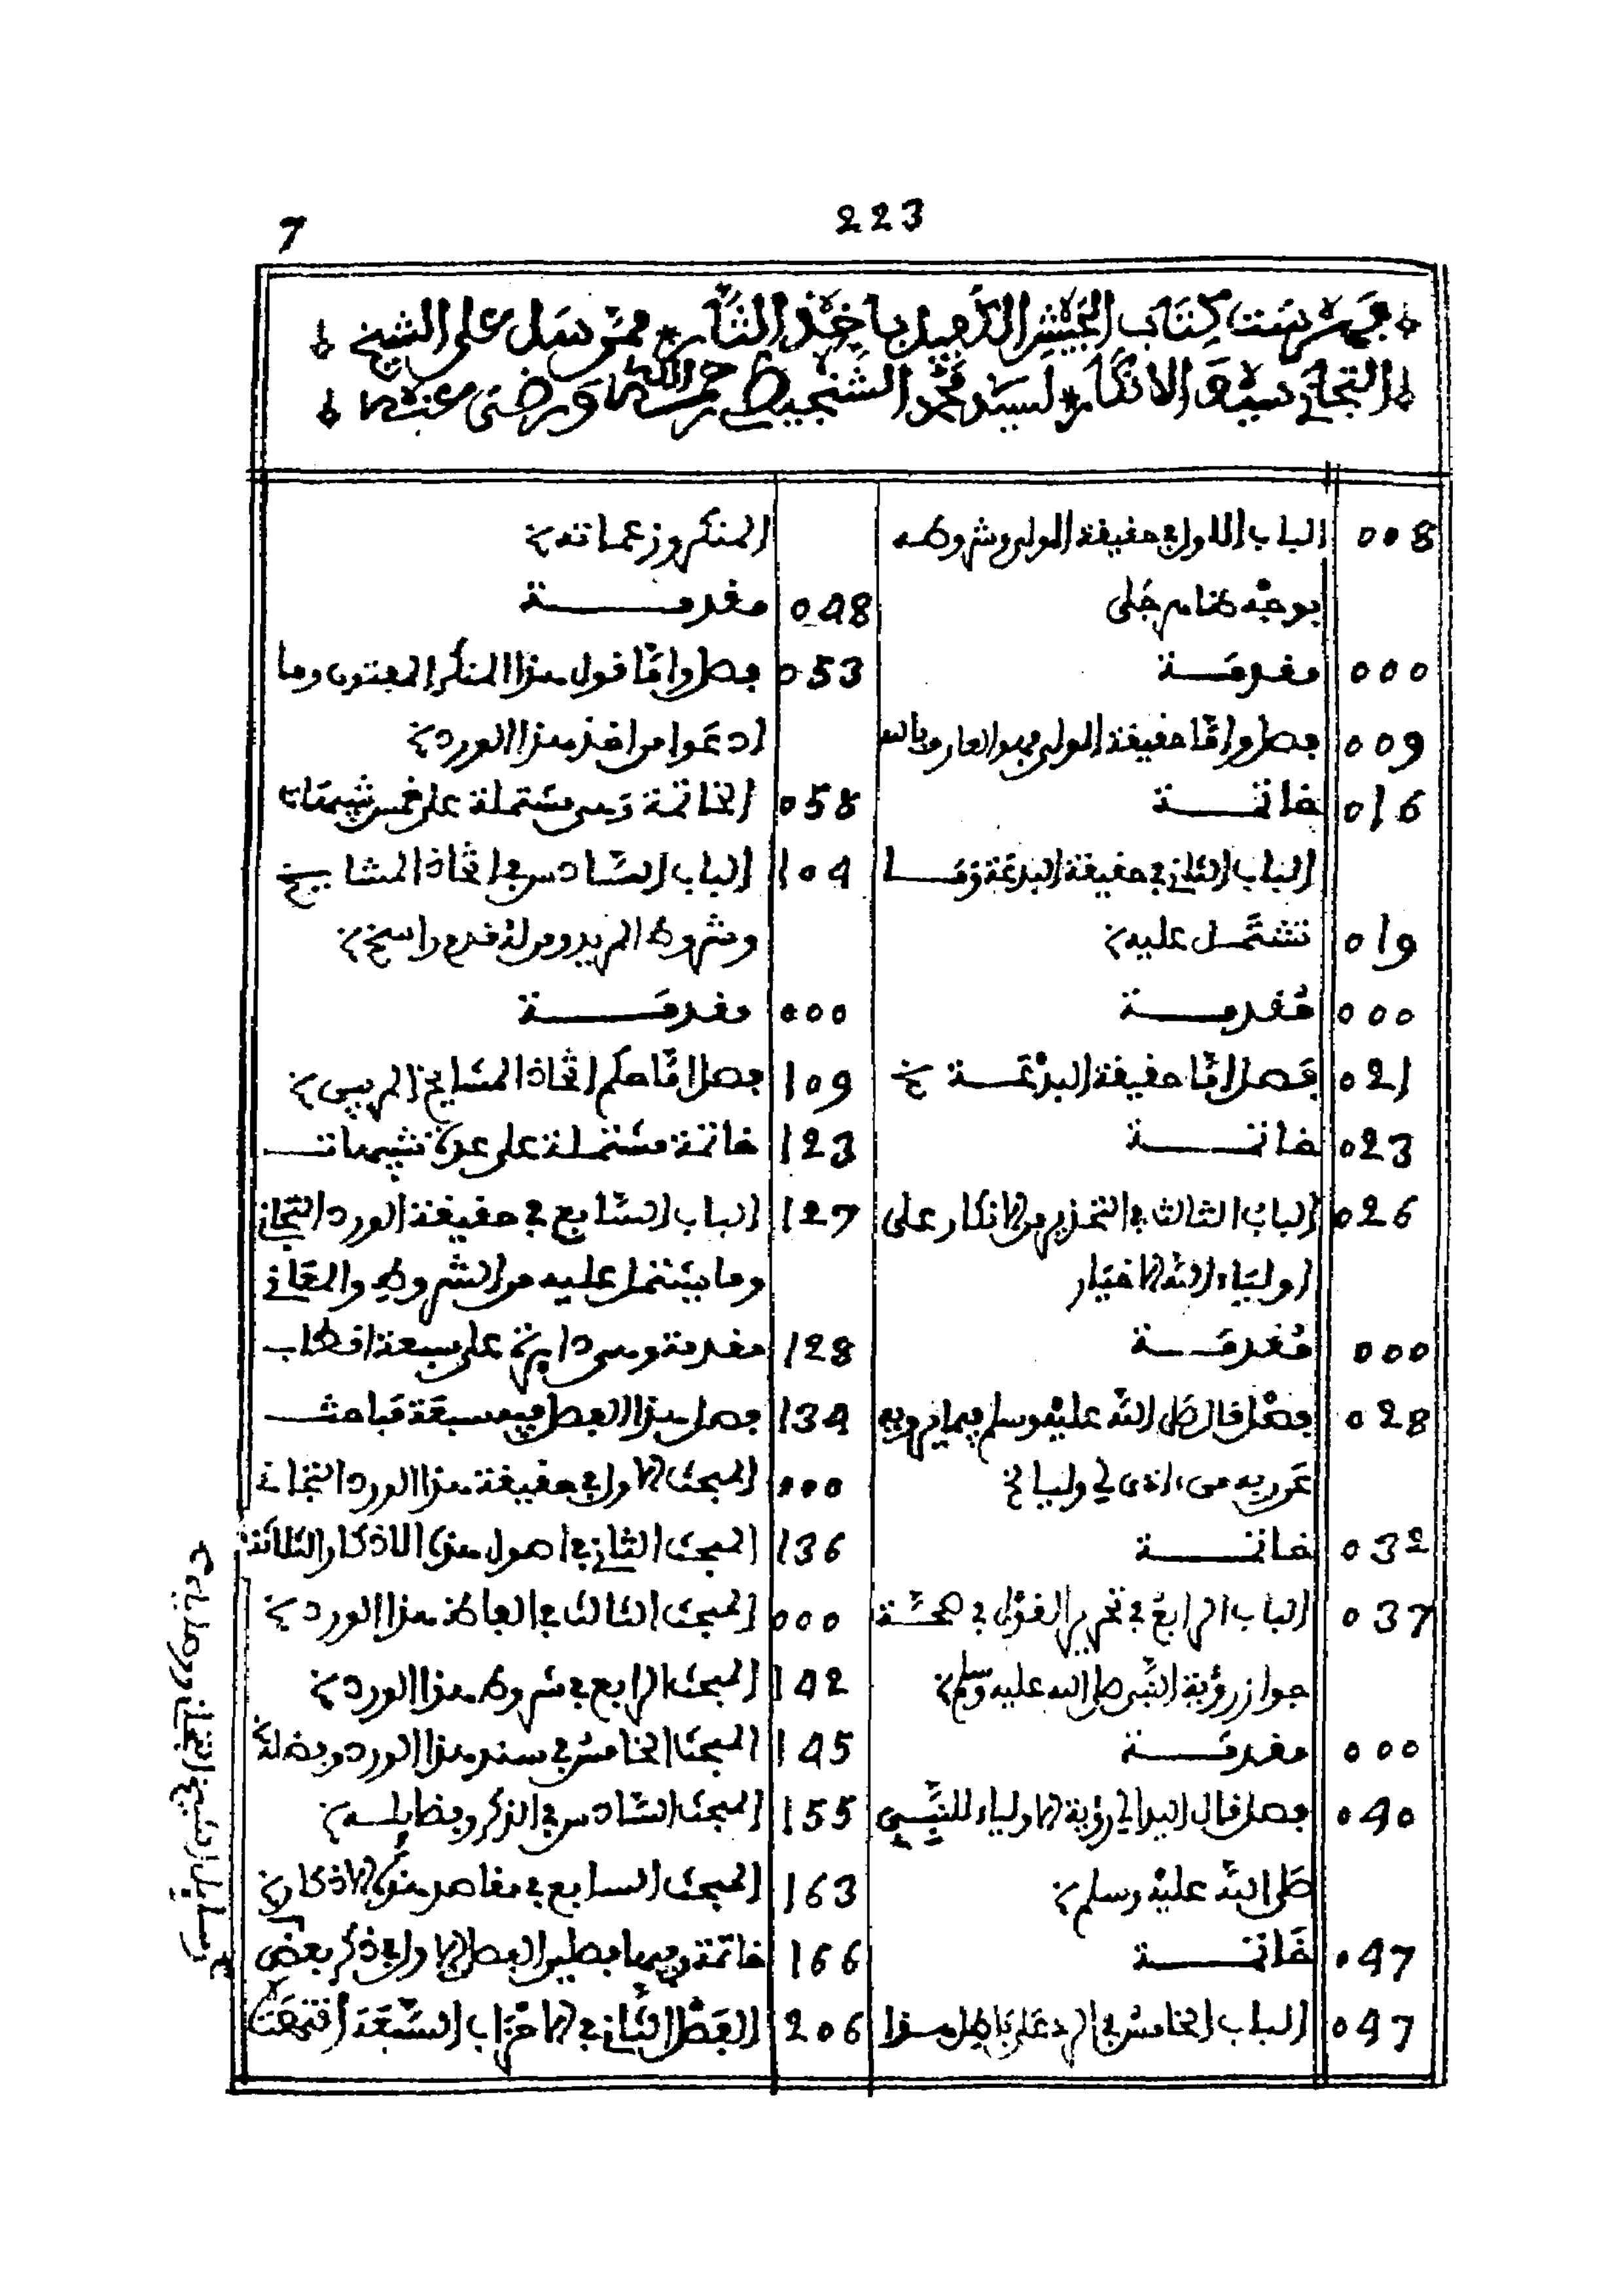 223
7
فهرست كتاب الجيش الكفيل بأخذ الثأر ممن سل على الشيخ
التجاني سيف الانكار لسيد محمد الشنجيطي رحمه الله ورضى عنه
008 الباب الاول في حقيقة الولي وشروطه
بوجه ظاهر جلى
000 مقدمة
009 فصل واما حقيقة الولي فهو العارف بالله
016 خاتمة
الباب الثاني في حقيقة البدعة وما
019 تشتمل عليه
000 مقدمة
021 فصل اما حقيقة البدعة الخ
023 خاتمة
026 الباب الثالث في التحذير من الانكار على
اولياء الله الاخيار
000 مقدمة
028 فصل قال صلى الله عليه وسلم فيما يرويه
عن ربه من ءاذى لي وليا الخ
032 خاتمة
037 الباب الرابع في تحرير القول في صحة
جواز رؤية النبي صلى الله عليه وسلم
000 مقدمة
040 فصل قال رؤية الاولياء للنبي
صلى الله عليه وسلم
047 خاتمة
047 الباب الخامس في الرد على باطل هذا
المنكر وزعماته
048 مقدمة
053 فصل واما قول هذا المنكر المفتون وما
ادعوا من اخذ هذا الورد
058 الخاتمة وهى مشتملة على خمس تنبيهات
104 الباب السادس في اتخاذ المشايخ
وشروط المريد ومن له قدم راسخ
000 مقدمة
109 فصل اما حكم اتخاذ المشايخ المربيين
123 خاتمة مشتملة على عدة تنبيهات
127 الباب السابع في حقيقة الورد التجاني
وما يشتمل عليه من الشروط والمعاني
128 مقدمة وهى دايرة على سبعة اقطاب
134 فصل هذا الفصل فيه سبعة مباحث
000 المبحث الاول في حقيقة هذا الورد التجاني
136 المبحث الثاني في اصول هذه الاذكار الثلاثة
000 المبحث الثالث في الفاظ هذا الورد
142 المبحث الرابع في شروط هذا الورد
145 المبحث الخامس في سند هذا الورد وفضله
155 المبحث السادس في الذكر وفضايله
163 المبحث السابع في مقاصد هذه الاذكار
166 خاتمة وفيها فصلين الفصل الاول في ذكر بعض
رسايل الشيخ التجاني ووصاياه
206 الفصل الثاني في الاحزاب السبعة